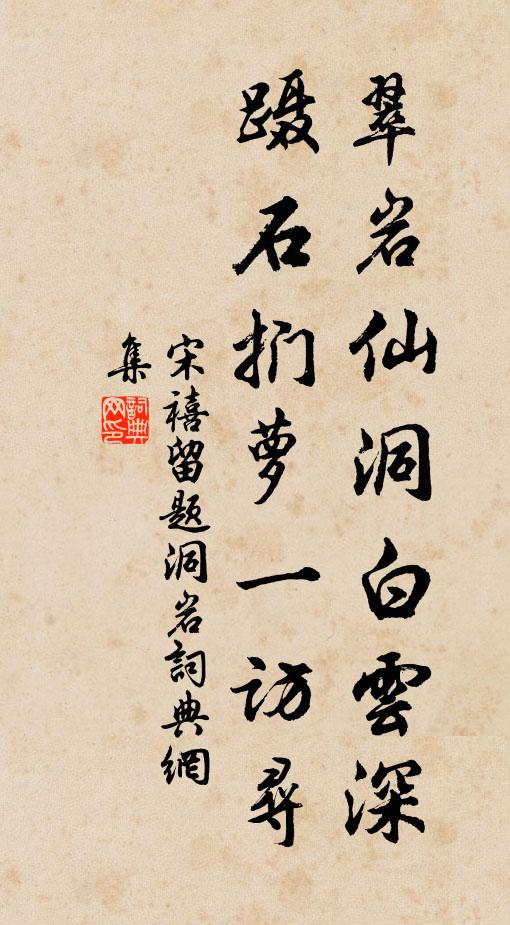 翠岩仙洞白雲深
蹑石扪萝一访尋
宋禧留题洞岩詞典網
集
詞典网印